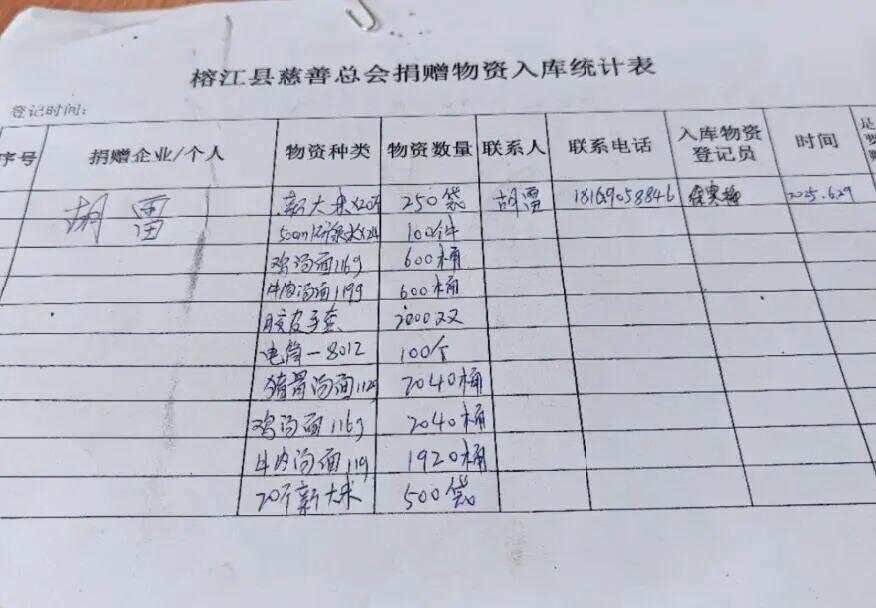 榕江县慈善总会捐赠物资入库统计表
登记时间:
序号 捐赠企业/个人 物资种类 物资数量 联系人 联系电话 入库物资登记员 时间 是
胡雷 新大米 250袋 胡雷 18169058846 2025.6.29
500ml矿泉水x24 100件
鸡汤面116g 600桶
牛肉汤面119g 600桶
胶皮手套 2000双
电筒-8012 100个
猪骨汤面112g 2040桶
鸡汤面116g 2040桶
牛肉汤面119 1920桶
20斤新大米 500袋